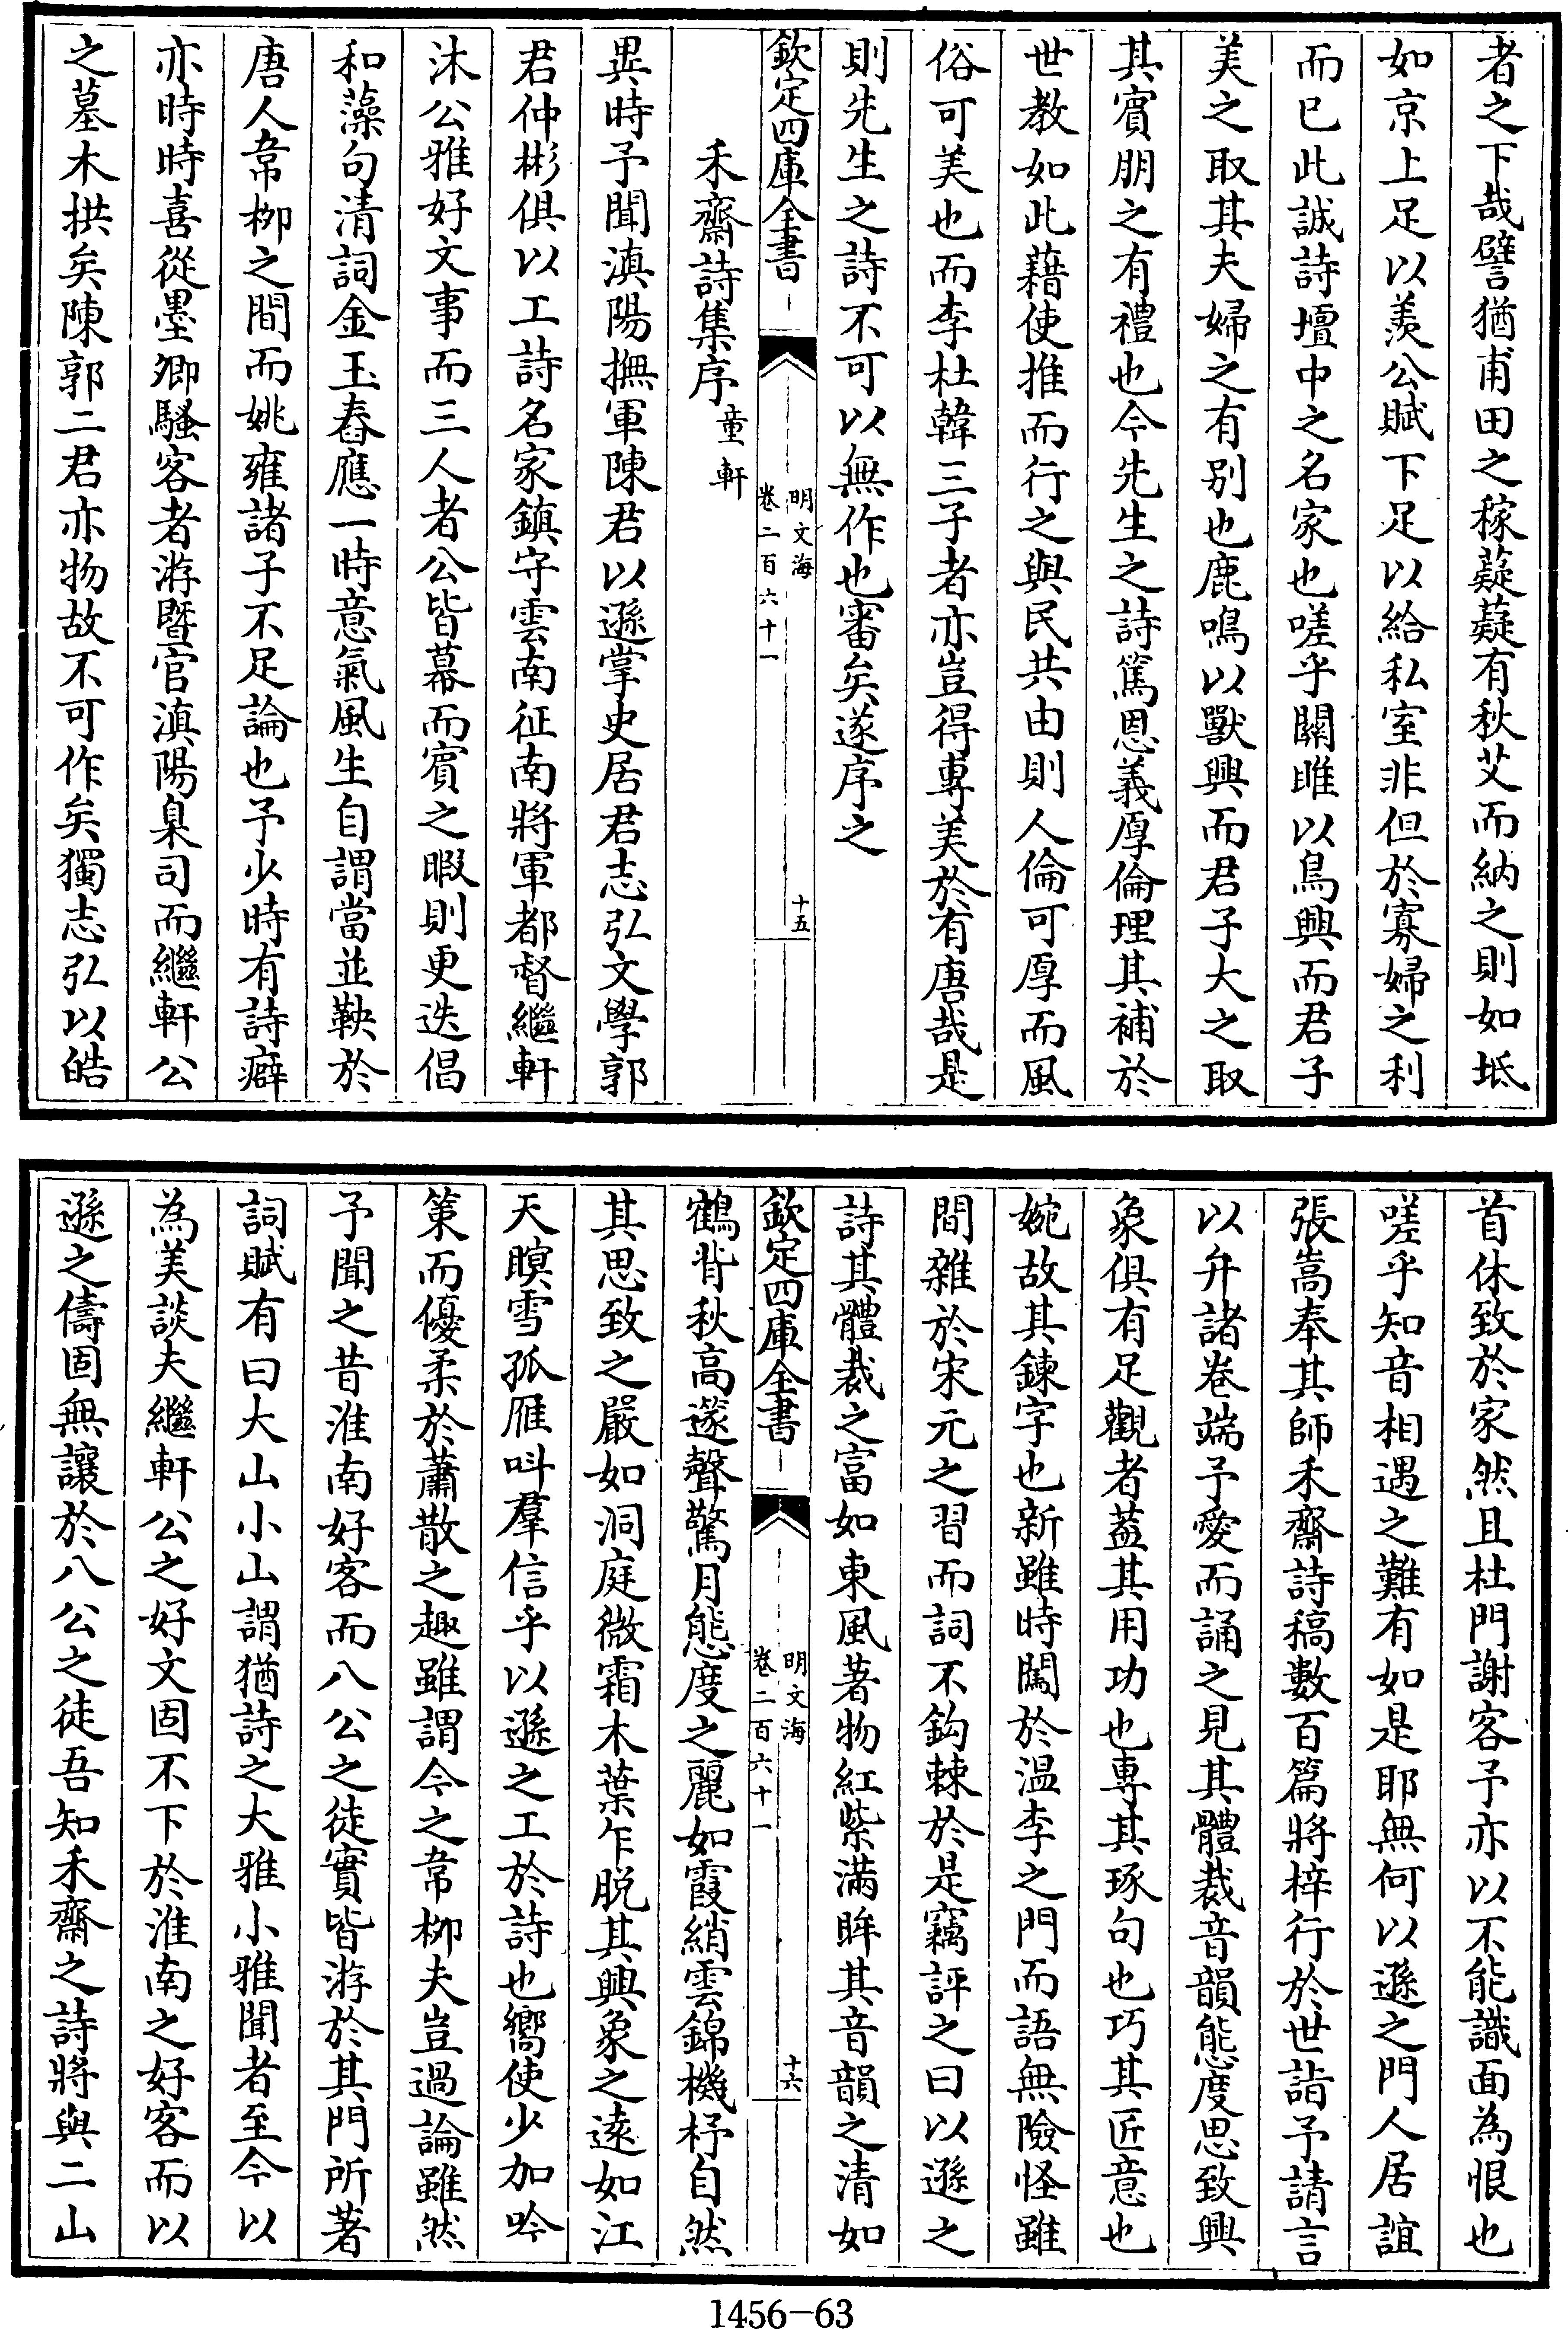 者之下哉譬猶甫田之稼薿薿有秋艾而納之則如坻
如京上足以羨公賦下足以給私室非但於寡婦之利
而已此誠詩壇中之名家也嗟乎關雎以鳥興而君子
美之取其夫婦之有别也鹿鳴以獸興而君子大之取
其賓朋之有禮也今先生之詩篤恩義厚倫理其補於
世教如此藉使推而行之與民共由則人倫可厚而風
俗可美也而李杜韓三子者亦豈得專美於有唐哉是
則先生之詩不可以無作也審矣遂序之
欽定四庫全書
明文海
卷二百六十一
十五
禾齋詩集序 童軒
異時予聞滇陽撫軍陳君以遜掌史居君志弘文學郭
君仲彬俱以工詩名家鎮守雲南征南將軍都督繼軒
沐公雅好文事而三人者公皆幕而賓之暇則更迭倡
和藻句清詞金玉舂應一時意氣風生自謂當並鞅於
唐人韋柳之間而姚雍諸子不足論也予少時有詩癖
亦時時喜從墨卿騷客者游暨官滇陽臬司而繼軒公
之墓木拱矣陳郭二君亦物故不可作矣獨志弘以皓
首休致於家然且杜門謝客予亦以不能識面為恨也
嗟乎知音相遇之難有如是耶無何以遜之門人居誼
張嵩奉其師禾齋詩稿數百篇將梓行於世詣予請言
以弁諸卷端予愛而誦之見其體裁音韻態度思致興
象俱有足觀者葢其用功也專其琢句也巧其匠意也
婉故其鍊字也新雖時闖於温李之門而語無險怪雖
間雜於宋元之習而詞不鈎棘於是竊評之曰以遜之
詩其體裁之富如東風著物紅紫满眸其音韻之清如
欽定四庫全書
明文海
卷二百六十一
十六
鶴背秋高邃聲驚月態度之麗如霞綃雲錦機杼自然
其思致之嚴如洞庭微霜木葉乍脱其興象之遠如江
天暝雪孤雁呌羣信乎以遜之工於詩也嚮使少加吟
策而優柔於蕭散之趣雖謂今之韋柳夫豈過論雖然
予聞之昔淮南好客而八公之徒實皆游於其門所著
詞賦有曰大山小山謂猶詩之大雅小雅聞者至今以
為美談夫繼軒公之好文固不下於淮南之好客而以
遜之儔固無讓於八公之徒吾知禾齋之詩將與二山
1456-63